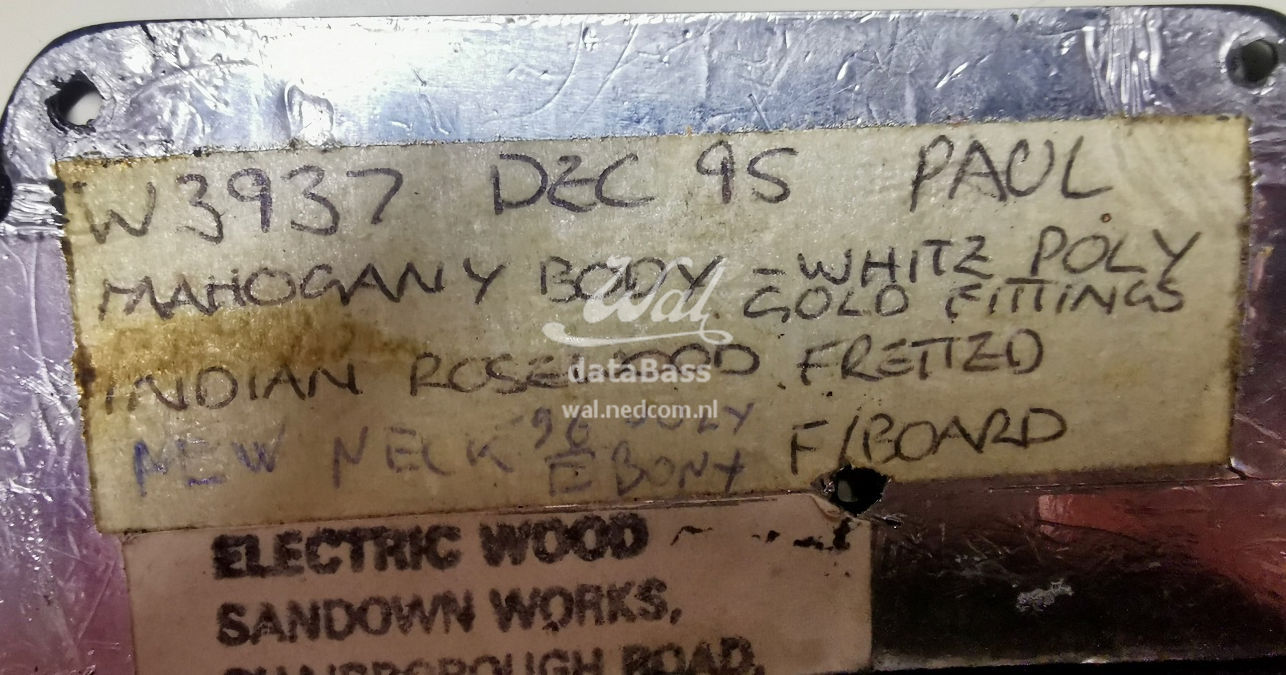 W3937 DEC 95 PAUL
MAHOGANY BODY - WHITE POLY
GOLD FITTINGS
INDIAN ROSEWOOD FRETTED
NEW NECK '96 JULY F/BOARD
EBONY
Wal
dataBass
wal.nedcom.nl
ELECTRIC WOOD
SANDOWN WORKS,
ROAD,